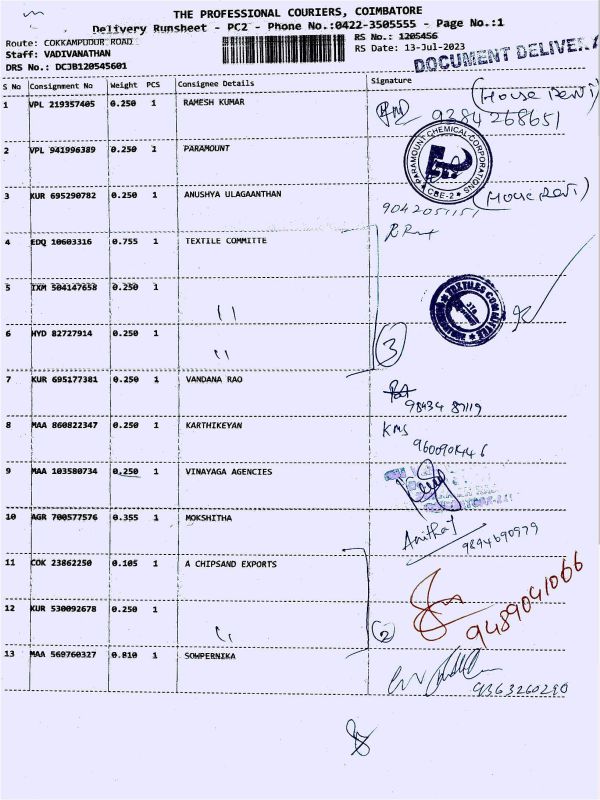 THE PROFESSIONAL COURIERS, COIMBATORE
Delivery Runsheet - PC2 - Phone No.:0422-3505555 - Page No.:1
Route: COKKAMPUDUR ROAD
RS No.: 1205456
Staff: VADIVANATHAN
RS Date: 13-Jul-2023
DRS No.: DCJB120545601
DOCUMENT DELIVER
S No Consignment No Weight PCS Consignee Details Signature
1 VPL 219357405 0.250 1 RAMESH KUMAR (House Rent)
9284268651
2 VPL 941996389 0.250 1 PARAMOUNT
PARAMOUNT CHEMICAL CORPORATIONS
CBE-2
3 KUR 695290782 0.250 1 ANUSHYA ULAGAANTHAN (House Rent)
4 EDQ 10603316 0.755 1 TEXTILE COMMITTE
5 IXM 504147658 0.250 1 "
TEXTILES COMMITTEE
6 HYD 82727914 0.250 1 " 3
7 KUR 695177381 0.250 1 VANDANA RAO
98434 87119
8 MAA 860822347 0.250 1 KARTHIKEYAN KMS
9 MAA 103580734 0.250 1 VINAYAGA AGENCIES
10 AGR 700577576 0.355 1 MOKSHITHA
9894690979
11 COK 23862250 0.105 1 A CHIPSAND EXPORTS
9489041066
12 KUR 530092678 0.250 1 " 2
13 MAA 569760327 0.810 1 SOWPERNIKA
9363260290